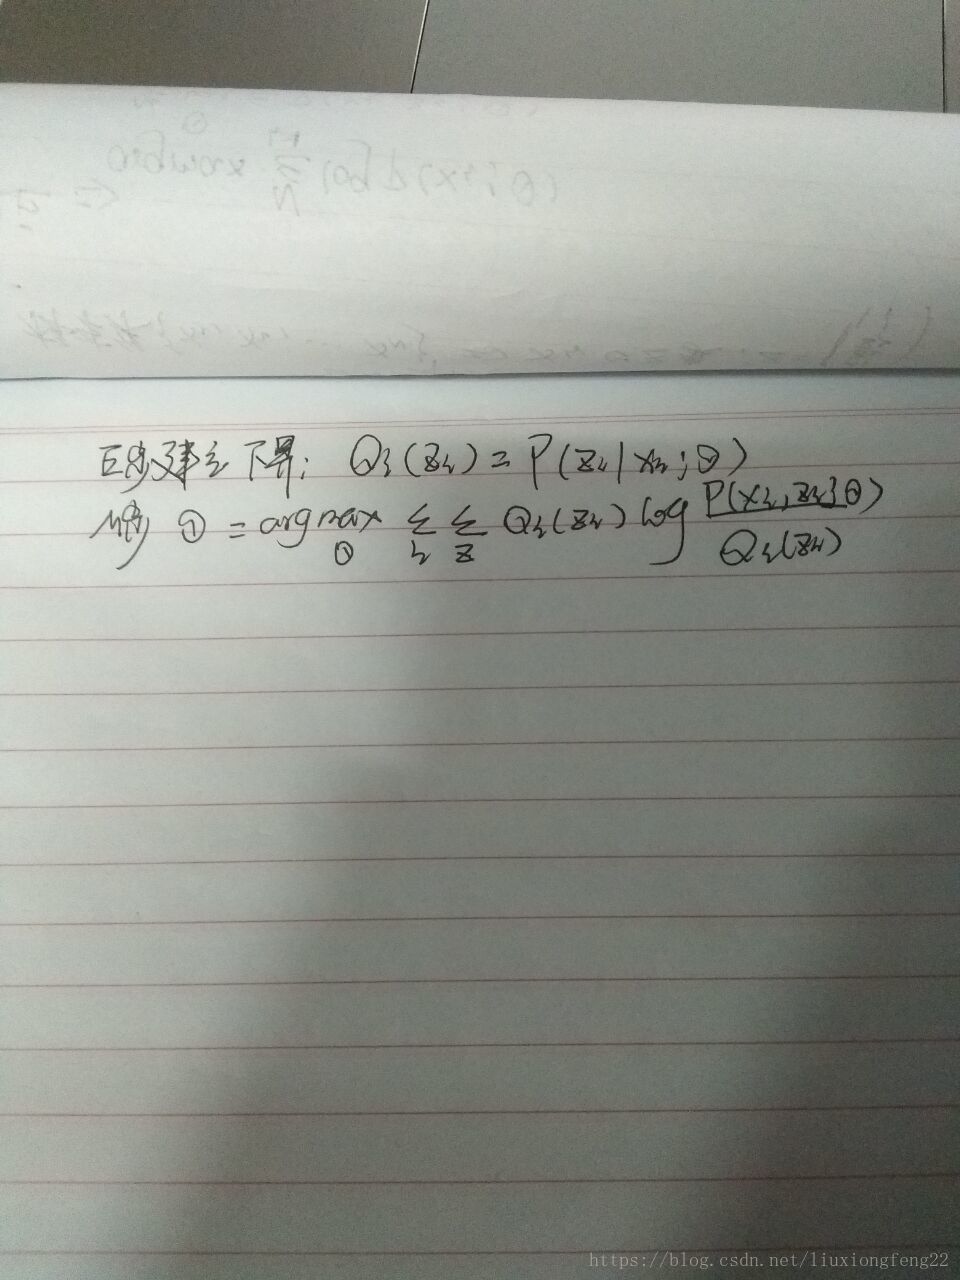 E步建立下界: Qi(Zi) = P(Zi|Xi;θ)
M步 θ = argmax_θ Σ_i Σ_z Qi(Zi) log P(Xi,Zi;θ) / Qi(Zi)
https://blog.csdn.net/liuxiongfeng22